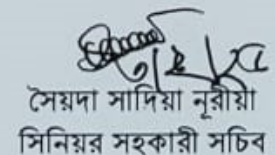 সৈয়দা সাদিয়া নূরীয়া
সিনিয়র সহকারী সচিব